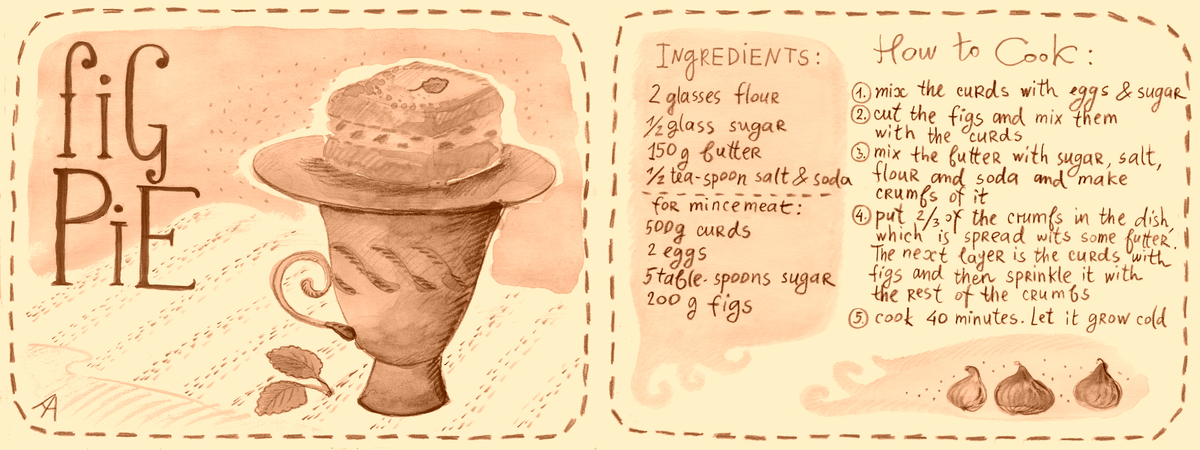 fiG
PiE
INgREDiENTS:
2 glasses flour
1/2 glass sugar
150 g butter
1/2 tea-spoon salt & soda
for mincemeat:
500g curds
2 eggs
5 table-spoons sugar
200 g figs
How to Cook:
1. mix the curds with eggs & sugar
2. cut the figs and mix them
with the curds
3. mix the butter with sugar, salt,
flour and soda and make
crumbs of it
4. put 2/3 of the crumbs in the dish,
which is spread wits some butter.
The next layer is the curds with
figs and then sprinkle it with
the rest of the crumbs
5. cook 40 minutes. Let it grow cold